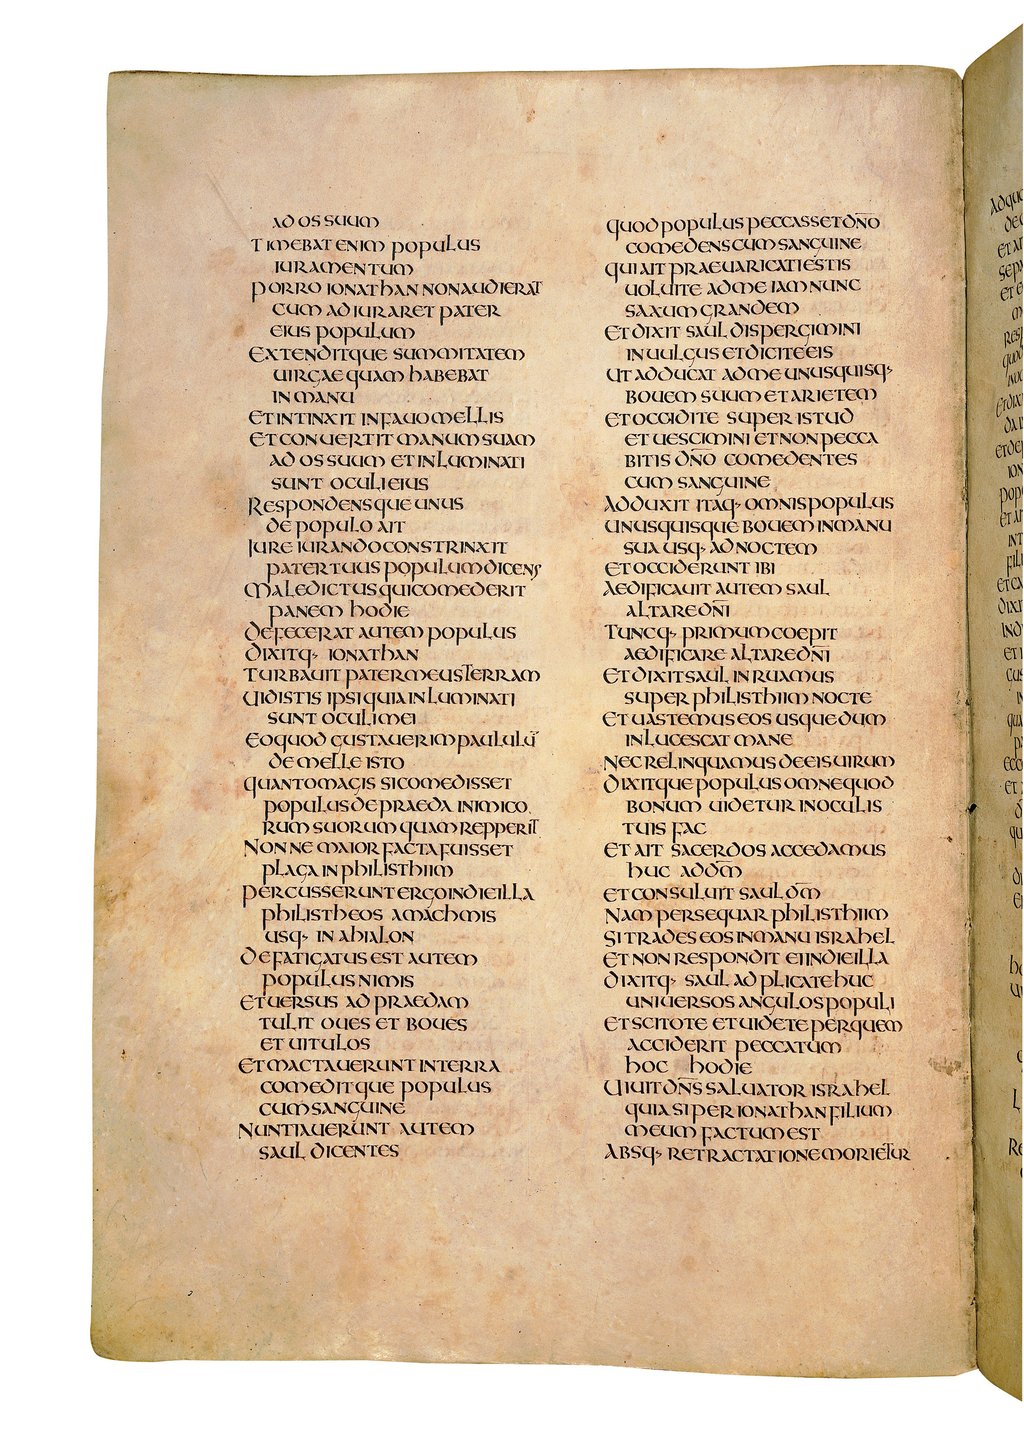 AD OS SUUM
TIMEBAT ENIM POPULUS
IURAMENTUM
PORRO IONATHAN NON AUDIERAT
CUM ADIURARET PATER
EIUS POPULUM
EXTENDITQUE SUMMITATEM
UIRGAE QUAM HABEBAT
IN MANU
ET INTINXIT IN FAUO MELLIS
ET CONUERTIT MANUM SUAM
AD OS SUUM ET INLUMINATI
SUNT OCULI EIUS
RESPONDENSQUE UNUS
DE POPULO AIT
IUREIURANDO CONSTRINXIT
PATER TUUS POPULUM DICENS
MALEDICTUS QUI COMEDERIT
PANEM HODIE
DEFECERAT AUTEM POPULUS
DIXITQ· IONATHAN
TURBAUIT PATER MEUS TERRAM
UIDISTIS IPSI QUIA INLUMINATI
SUNT OCULI MEI
EO QUOD GUSTAUERIM PAULULŪ
DE MELLE ISTO
QUANTO MAGIS SI COMEDISSET
POPULUS DE PRAEDA INIMICO
RUM SUORUM QUAM REPPERIT
NONNE MAIOR FACTA FUISSET
PLAGA IN PHILISTHIIM
PERCUSSERUNT ERGO IN DIE ILLA
PHILISTHEOS A MACHMIS
USQ· IN AHIALON
DEFATIGATUS EST AUTEM
POPULUS NIMIS
ET UERSUS AD PRAEDAM
TULIT OUES ET BOUES
ET UITULOS
ET MACTAUERUNT IN TERRA
COMEDITQUE POPULUS
CUM SANGUINE
NUNTIAUERUNT AUTEM
SAUL DICENTES
QUOD POPULUS PECCASSET DN̄O
COMEDENS CUM SANGUINE
QUI AIT PRAEUARICATI ESTIS
UOLUITE AD ME IAM NUNC
SAXUM GRANDEM
ET DIXIT SAUL DISPERGIMINI
IN UULGUS ET DICITE EIS
UT ADDUCAT AD ME UNUSQUISQ·
BOUEM SUUM ET ARIETEM
ET OCCIDITE SUPER ISTUD
ET UESCIMINI ET NON PECCA
BITIS DN̄O COMEDENTES
CUM SANGUINE
ADDUXIT ITAQ· OMNIS POPULUS
UNUSQUISQUE BOUEM IN MANU
SUA USQ· AD NOCTEM
ET OCCIDERUNT IBI
AEDIFICAUIT AUTEM SAUL
ALTARE DN̄I
TUNCQ· PRIMUM COEPIT
AEDIFICARE ALTARE DN̄I
ET DIXIT SAUL INRUAMUS
SUPER PHILISTHIIM NOCTE
ET UASTEMUS EOS USQUE DUM
INLUCESCAT MANE
NEC RELINQUAMUS DE EIS UIRUM
DIXITQUE POPULUS OMNE QUOD
BONUM UIDETUR IN OCULIS
TUIS FAC
ET AIT SACERDOS ACCEDAMUS
HUC AD DM̄
ET CONSULUIT SAUL DM̄
NAM PERSEQUAR PHILISTHIIM
SI TRADES EOS IN MANU ISRAHEL
ET NON RESPONDIT EI IN DIE ILLA
DIXITQ· SAUL ADPLICATE HUC
UNIUERSOS ANGULOS POPULI
ET SCITOTE ET UIDETE PER QUEM
ACCIDERIT PECCATUM
HOC HODIE
UIUIT DN̄S SALUATOR ISRAHEL
QUIA SI PER IONATHAN FILIUM
MEUM FACTUM EST
ABSQ· RETRACTATIONE MORIETUR